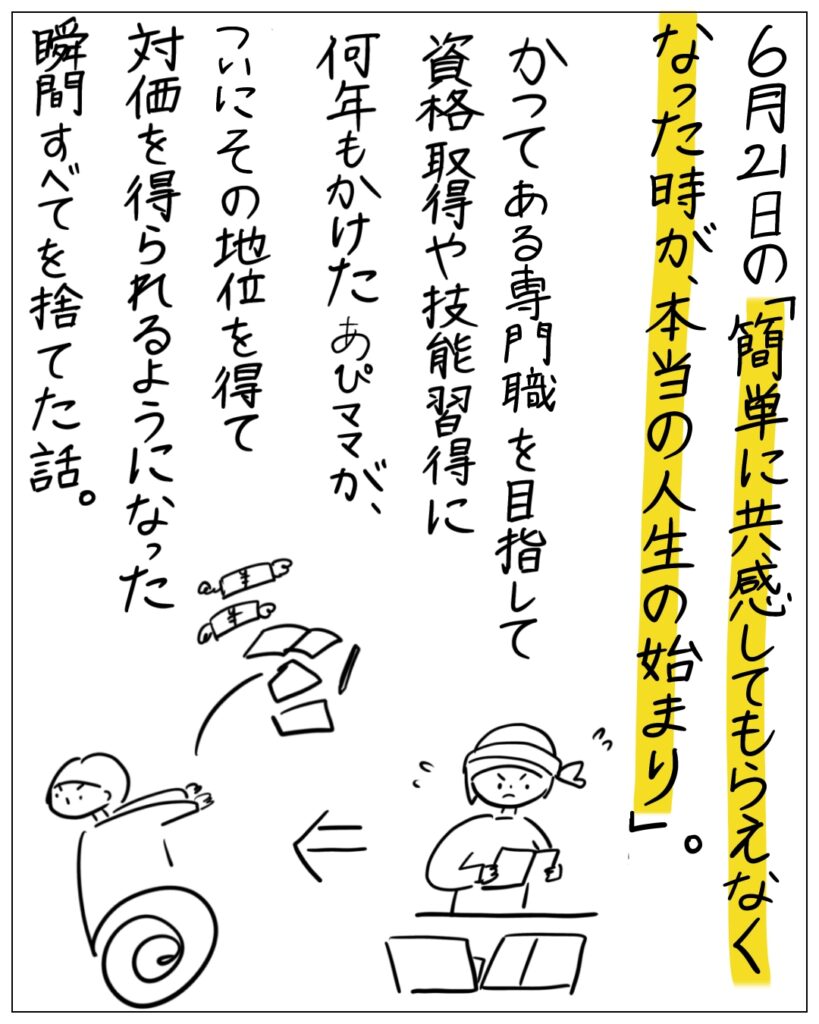 6月21日の「簡単に共感してもらえなく
なった時が、本当の人生の始まり」。
かつてある専門職を目指して
資格取得や技能習得に
何年もかけたあぴママが、
ついにその地位を得て
対価を得られるようになった
瞬間すべてを捨てた話。